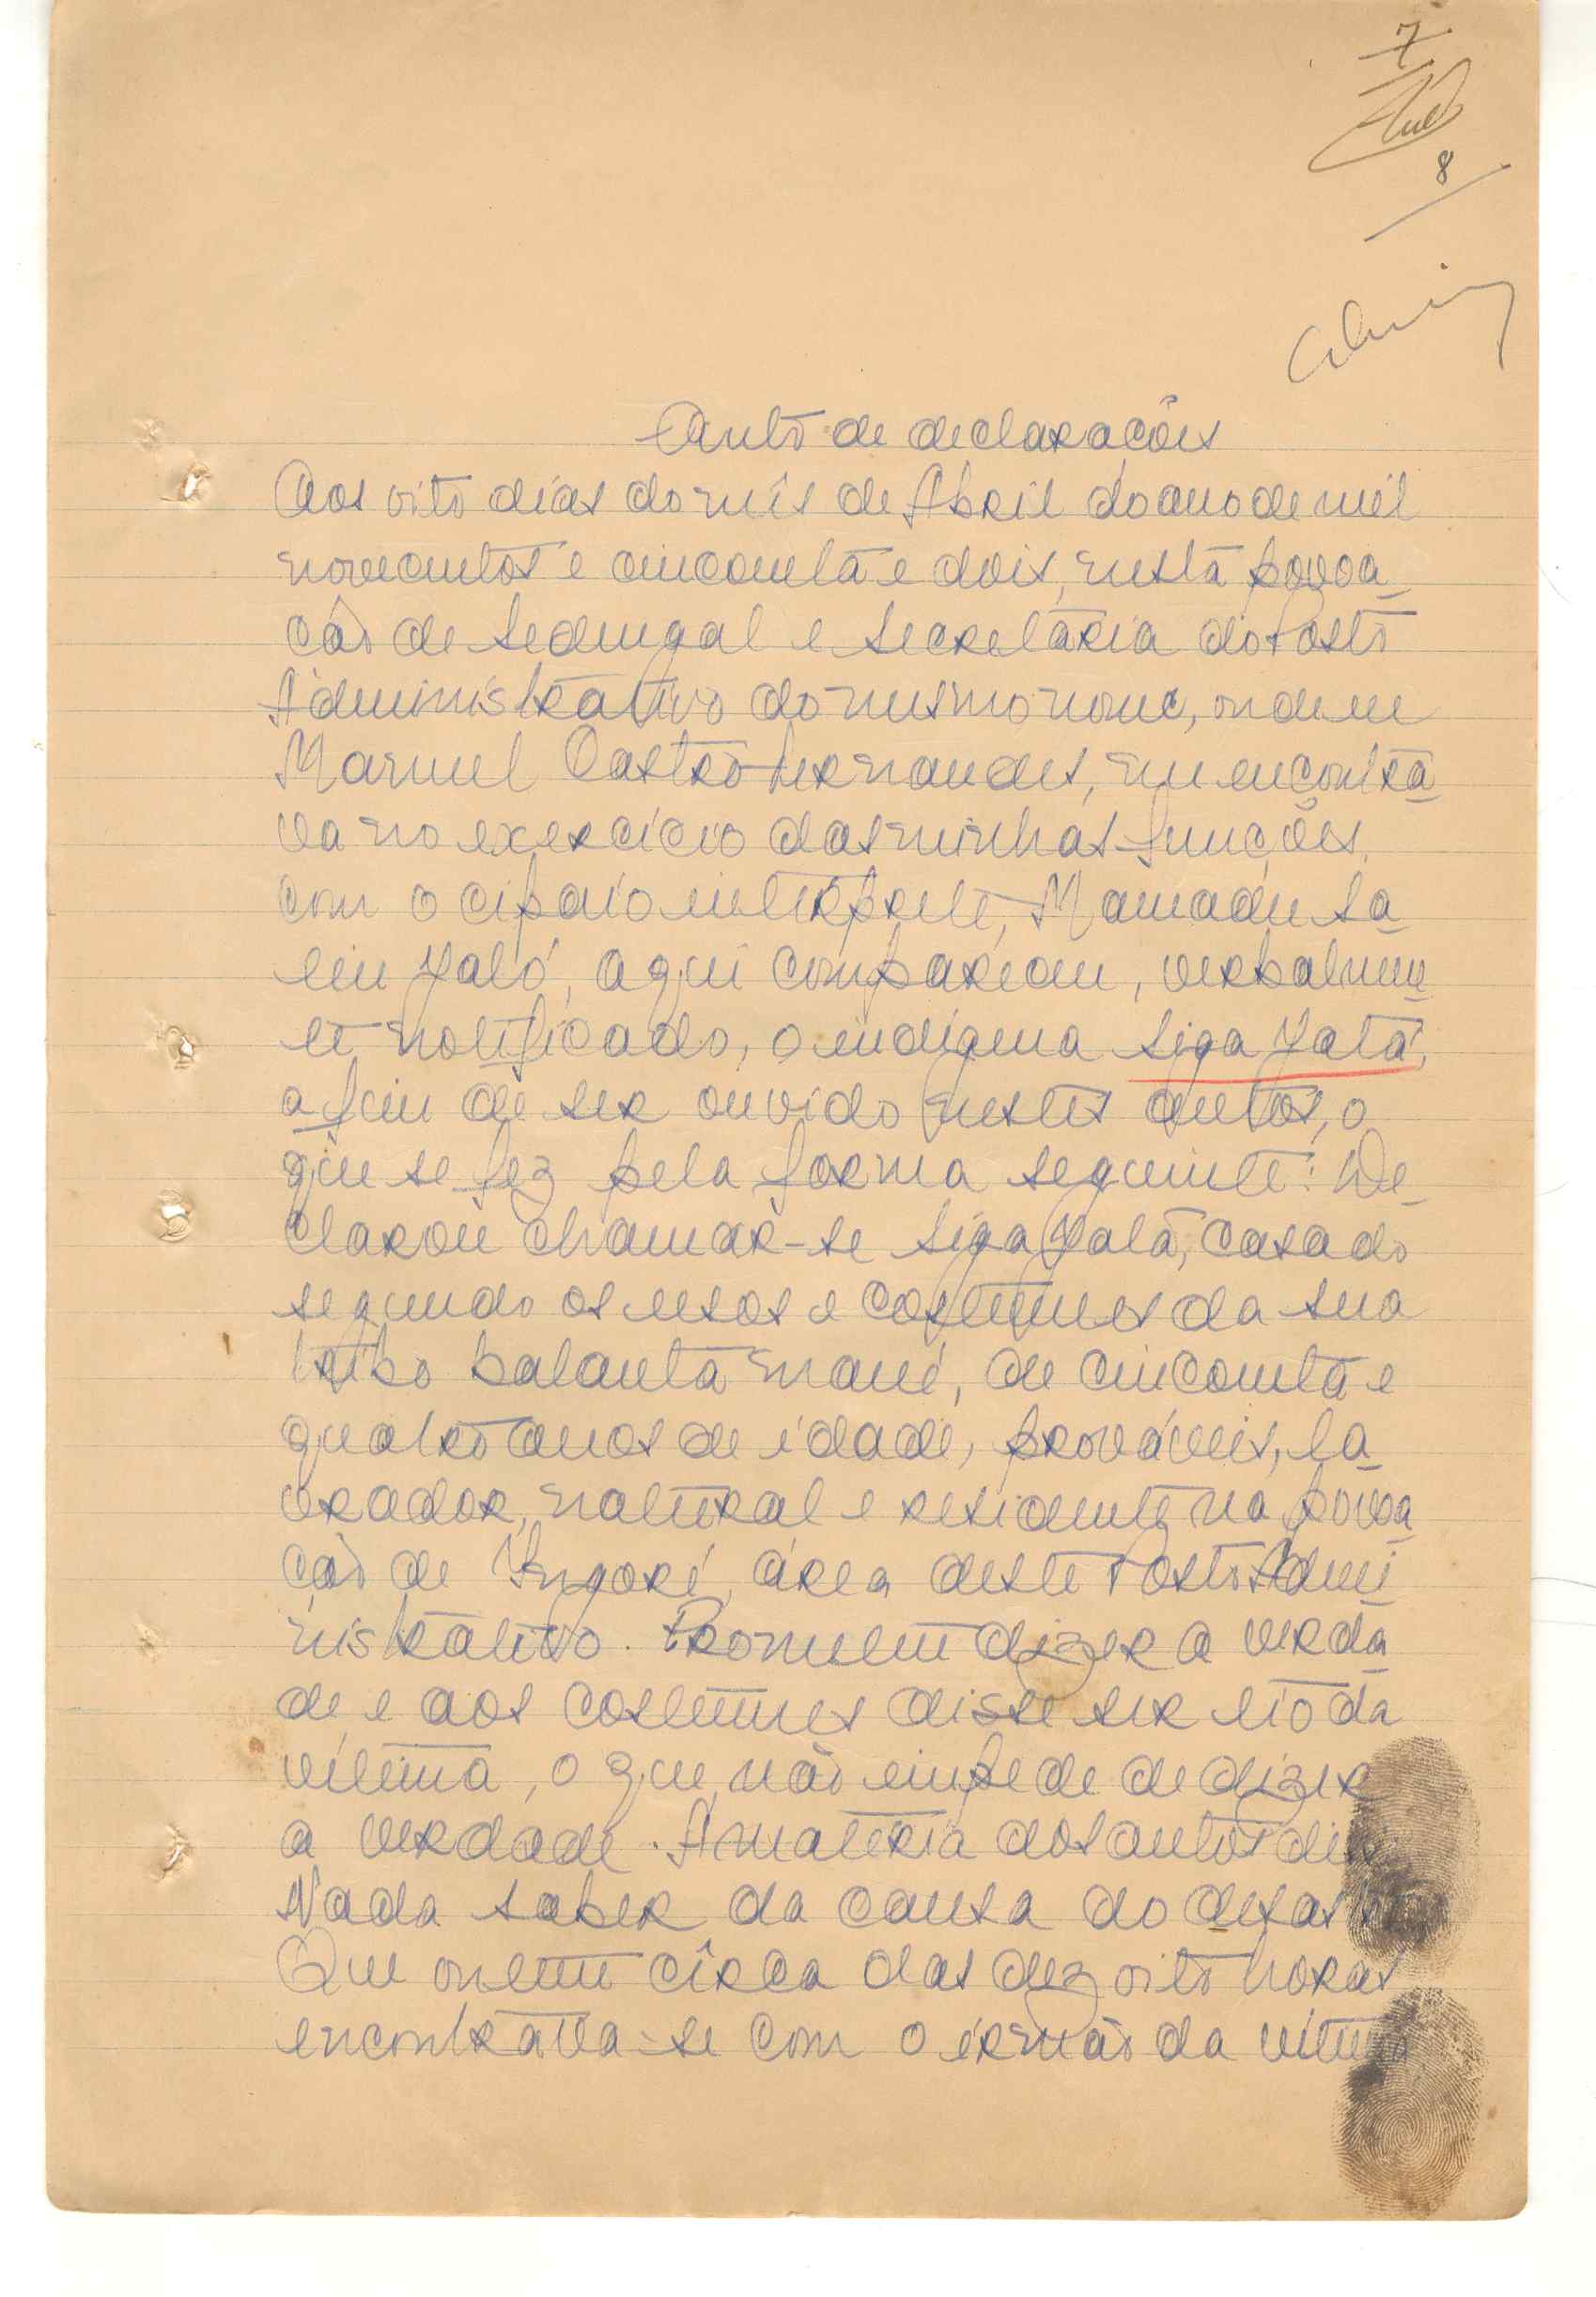 7
8
Auto de declarações
Aos oito dias do mês de Abril do ano de mil
novecentos e cincoenta e dois, nesta povoa
ção de Sedengal e Secretaria do Posto
Administrativo do mesmo nome, onde eu
Manuel Castro Fernandes, me encontra
va no exercício das minhas funções,
com o cipaio intérprete, Mamadu Sa
liu Jaló, aqui compareceu, verbalmen
te notificado, o indígena Siga Jatá,
a fim de ser ouvido nestes autos, o
que se fez pela forma seguinte: De
clarou chamar-se Siga Jatá, casado
segundo os usos e costumes da sua
tribo balanta mané, de cincoenta e
quatro anos de idade, prováveis, la
vrador, natural e residente na povoa
ção de Ingoré, área deste Posto Admi
nistrativo. Prometeu dizer a verda
de e aos costumes disse ser tio da
vítima, o que não impede de dizer
a verdade. A matéria dos autos diz:
Nada saber da causa do desastre
Que ontem cêrca das dezoito horas
encontrava-se com o irmão da vítima